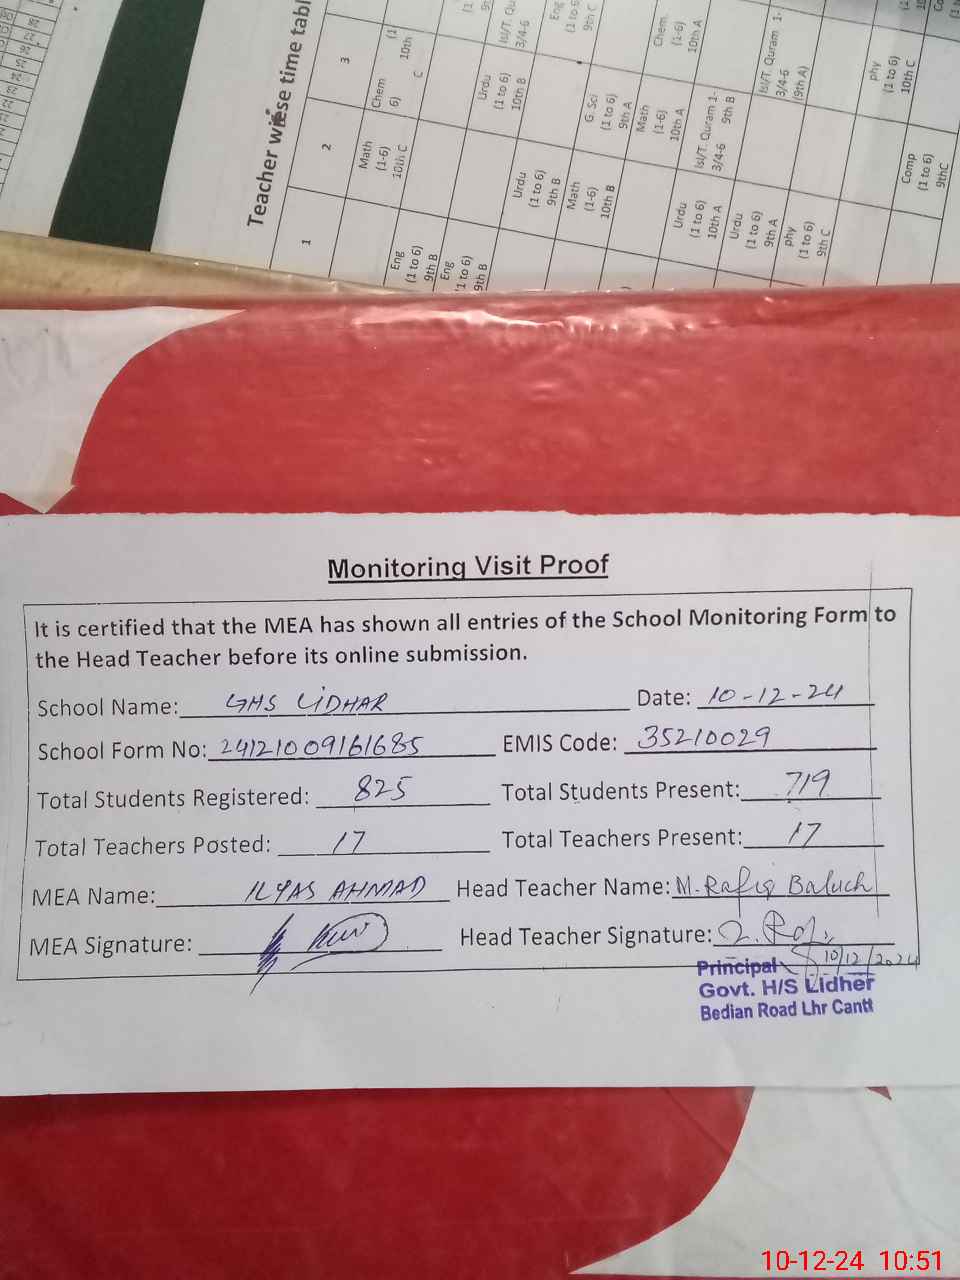 Teacher wise time tabl
1
2
3
Math
(1-6)
10th C
Chem
6)
C
(1
10th
Eng
(1 to 6)
9th B
Eng
(1 to 6)
9th B
Urdu
(1 to 6)
10th B
Isl/T. Qu
3/4-6
Urdu
(1 to 6)
9th B
Math
(1-6)
10th B
G. Sci
(1 to 6)
9th A
Eng
(1 to 6)
9th C
Math
(1-6)
10th A
Chem.
(1-6)
10th A
Urdu
(1 to 6)
10th A
Isl/T. Quram 1-
3/4-6 9th B
Urdu
(1 to 6)
9th A
Isl/T. Quram 1-
3/4-6
(9th A)
phy
(1 to 6)
9th C
phy
(1 to 6)
10th C
Comp
(1 to 6)
9thC
Monitoring Visit Proof
It is certified that the MEA has shown all entries of the School Monitoring Form to
the Head Teacher before its online submission.
School Name: GHS LIDHAR Date: 10-12-24
School Form No: 24121009161685 EMIS Code: 35210029
Total Students Registered: 825 Total Students Present: 719
Total Teachers Posted: 17 Total Teachers Present: 17
MEA Name: ILYAS AHMAD Head Teacher Name: M. Rafiq Baluch
MEA Signature: Head Teacher Signature:
10/12/2024
Principal
Govt. H/S Lidher
Bedian Road Lhr Cantt
10-12-24 10:51